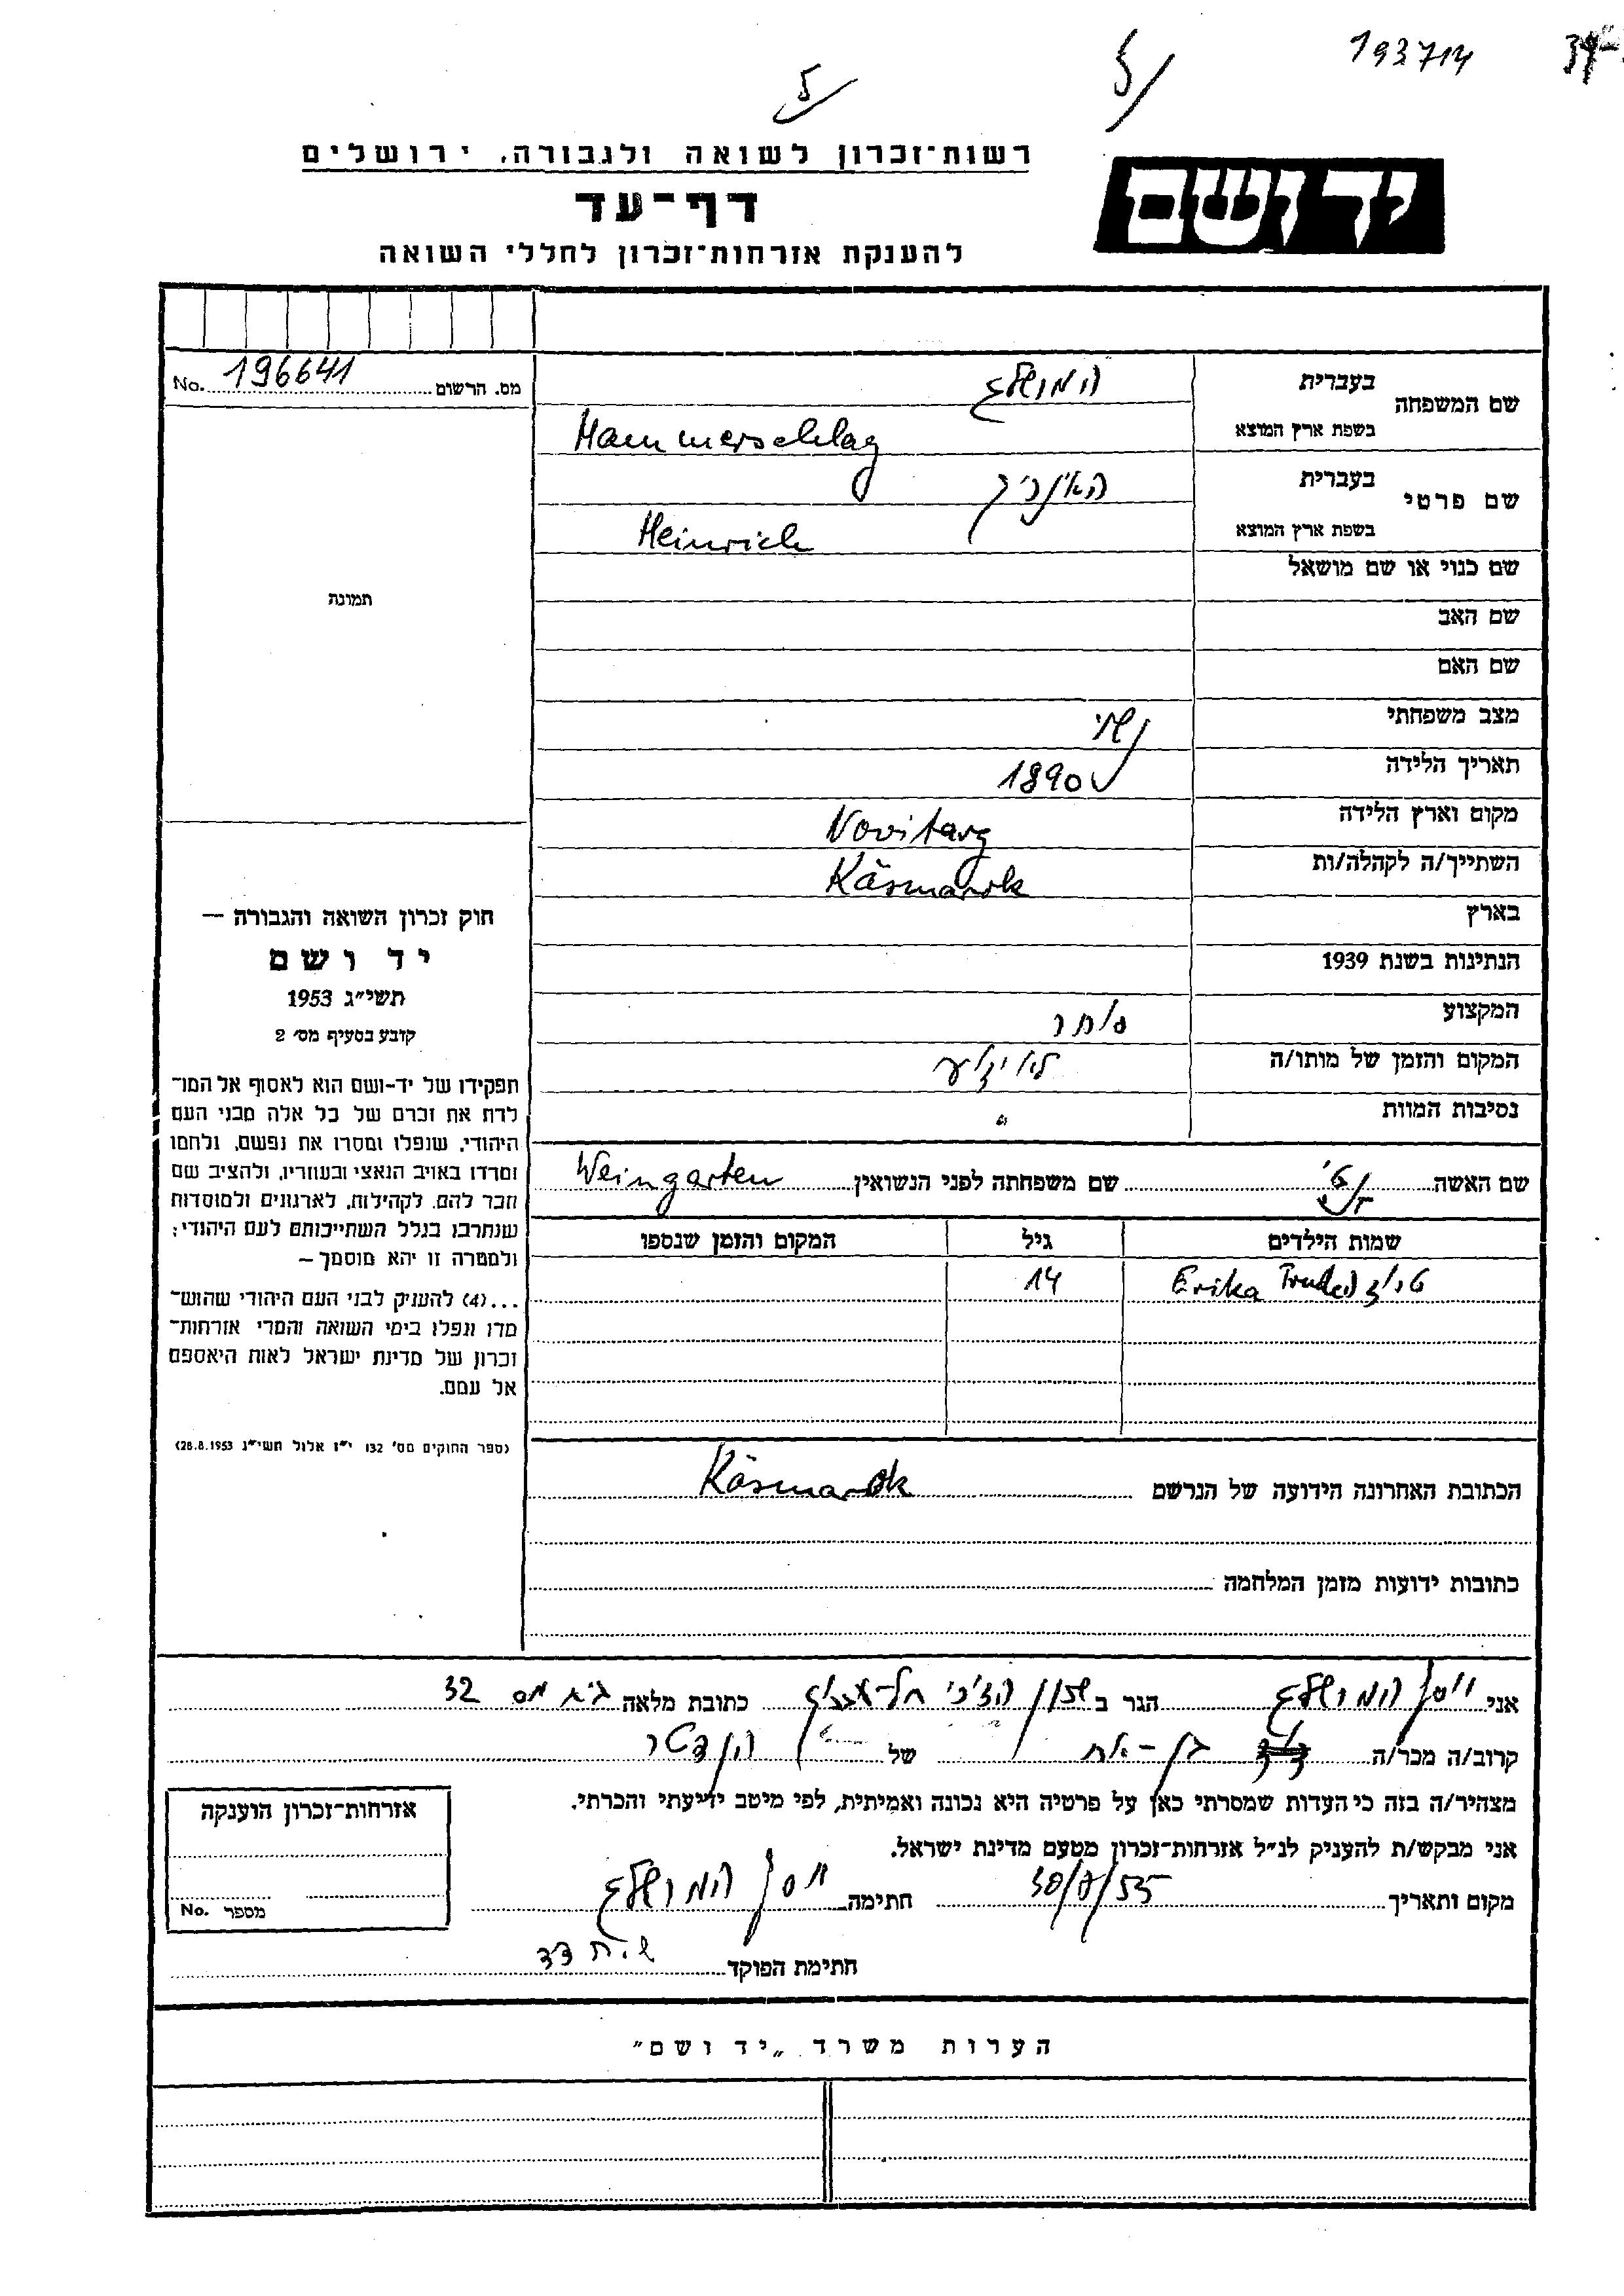 193714
5
5
רשות־זכרון לשואה ולגבורה, ירושלים
דף־עד
להענקת אזרחות־זכרון לחללי השואה
יד ושם
מס. הרשום 196641 No.
שם המשפחה
בעברית
בשפת ארץ המוצא Hammerschlag
שם פרטי
בעברית היינריך
בשפת ארץ המוצא Heinrich
שם כנוי או שם מושאל
שם האב
שם האם
מצב משפחתי נשוי
תאריך הלידה 1890
מקום וארץ הלידה Novitarg
השתייך/ה לקהלה/ות Käsmark
בארץ
הנתינות בשנת 1939
המקצוע סוחר
המקום והזמן של מותו/ה לא ידוע
נסיבות המוות "
תמונה
חוק זכרון השואה והגבורה —
יד ושם
תשי״ג 1953
קובע בסעיף מס׳ 2
תפקידו של יד-ושם הוא לאסוף אל המו־
לדת את זכרם של כל אלה מבני העם
היהודי, שנפלו ומסרו את נפשם, נלחמו
ומרדו באויב הנאצי ובעוזריו, ולהציב שם
וזכר להם, לקהילות, לארגונים ולמוסדות
שנחרבו בגלל השתייכותם לעם היהודי;
ולמטרה זו יהא מוסמך –
...(4) להעניק לבני העם היהודי שהוש־
מדו ונפלו בימי השואה והמרי אזרחות־
זכרון של מדינת ישראל לאות היאספם
אל עמם.
(ספר החוקים מס׳ 132 י״ז אלול תשי״ג 28.8.1953)
שם האשה שם משפחתה לפני הנשואין Weingarten
שמות הילדים גיל המקום והזמן שנספו
Erika 14
הכתובת האחרונה הידועה של הנרשם Käsmark
כתובות ידועות מזמן המלחמה
אני יוסף המרשלג הגר ב כתובת מלאה 32
קרוב/ה מכר/ה בן-אח של
מצהיר/ה בזה כי העדות שמסרתי כאן על פרטיה היא נכונה ואמיתית, לפי מיטב ידיעתי והכרתי.
אני מבקש/ת להעניק לנ״ל אזרחות־זכרון מטעם מדינת ישראל.
מקום ותאריך חתימה יוסף המרשלג
חתימת הפוקד
אזרחות־זכרון הוענקה
מספר No.
הערות משרד „יד ושם״